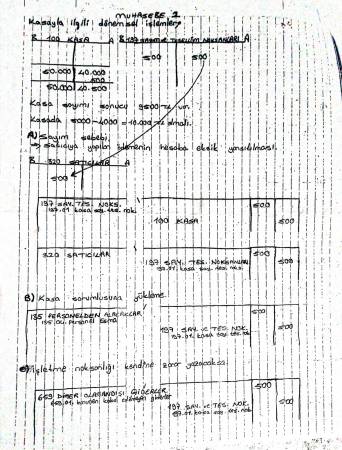 MUHASEBE 2
Kasayla ilgili dönemsel işlemler
B 100 KASA A B 197 SAYIM ve TESLİM NOKSANLARI A
500 500
50.000 40.000
500
50.000 40.500
Kasa sayımı sonucu 9500 TL var.
Kasada 5000-4000 = 10.000 TL olmalı.
A) Sayım sebebi;
→ Satıcıya yapılan ödemenin hesaba eksik yansıtılması.
B 320 SATICILAR A
500
197 SAY. TES. NOKS. 500
197.01 kasa say. tes. nok.
100 KASA 500
320 SATICILAR 500
197 SAY. TES. NOKSANLARI 500
197.01 kasa say. tes. noks.
B) Kasa sorumlusuna yükleme.
135 PERSONELDEN ALACAKLAR 500
135.01 Personel Esma
197 SAY. ve TES. NOK. 500
197.01 kasa say. tes. nok.
C) İşletme noksanlığı kendine zarar yazacaksa.
659 DİĞER OLAĞANDIŞI GİDERLER 500
659.01 kanunen kabul edilmeyen giderler
197 SAY. ve TES. NOK. 500
197.01 kasa say. tes. nok.